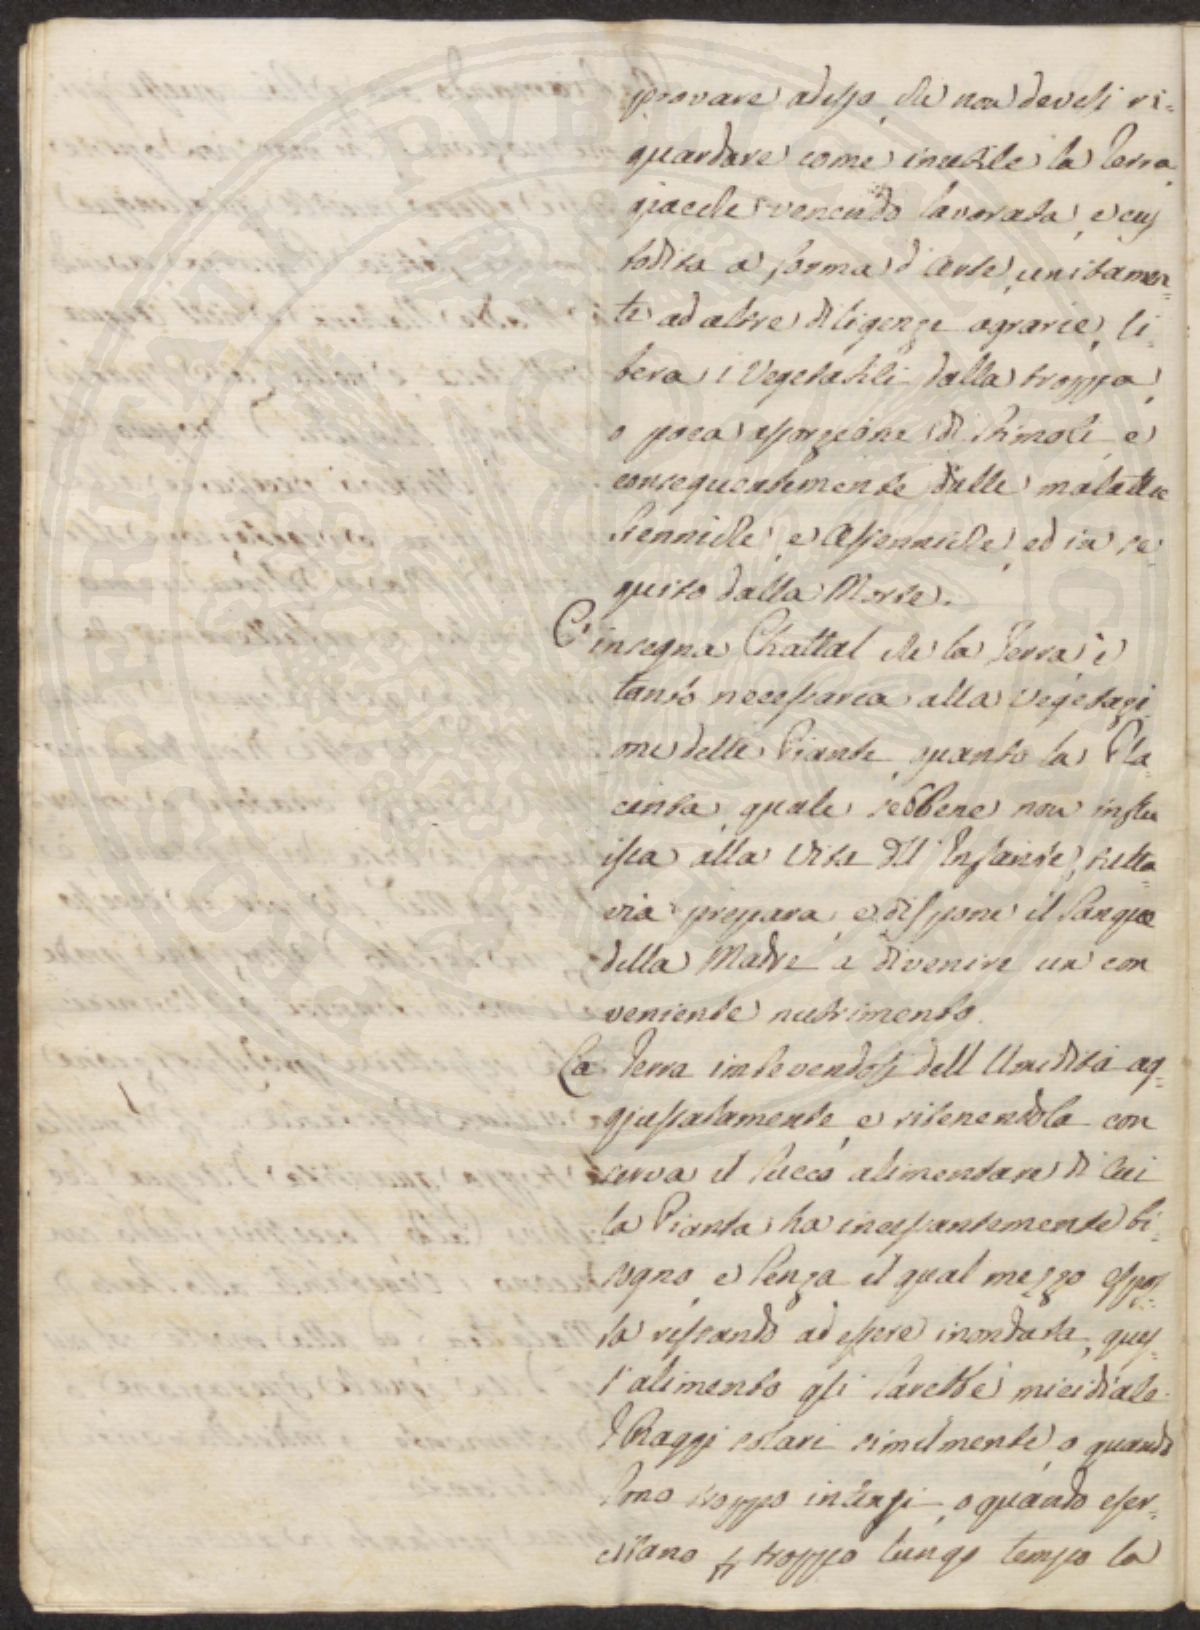 provare adesso, che non devesi ri-
guardare come inutile la Terra,
giacche venendo lavorata, e cus
todita a forma d'Arte, unitamen-
te ad altre diligenze agrarie, li-
bera i Vegetabili dalla troppa,
o poca assorzione di Stimoli, e
conseguentemente dalle malattie
Steniche, e Asteniche, ed in se-
guito dalla Morte.
C'insegna Chattal che la Terra è
tanto necessaria alla Vegetazi-
one delle Piante, quanto la Pla-
centa, quale sebbene non influ
isca alla Vita dell'Infante, tutta-
via prepara, e dispone il Sangue
della Madre a divenire un con
veniente nutrimento.
La Terra imbevendosi dell'Umidità ag-
giustatamente, e ritenendola con
serva il Succo alimentare di cui
la Pianta ha incessantemente bi-
sogno, e Senza il qual mezzo espos-
ta restando ad essere inondata, ques-
t'alimento gli sarebbe micidiale.
I Raggi solari similmente, o quando
Sono troppo intensi, o quando eser-
citano troppo lungo tempo la